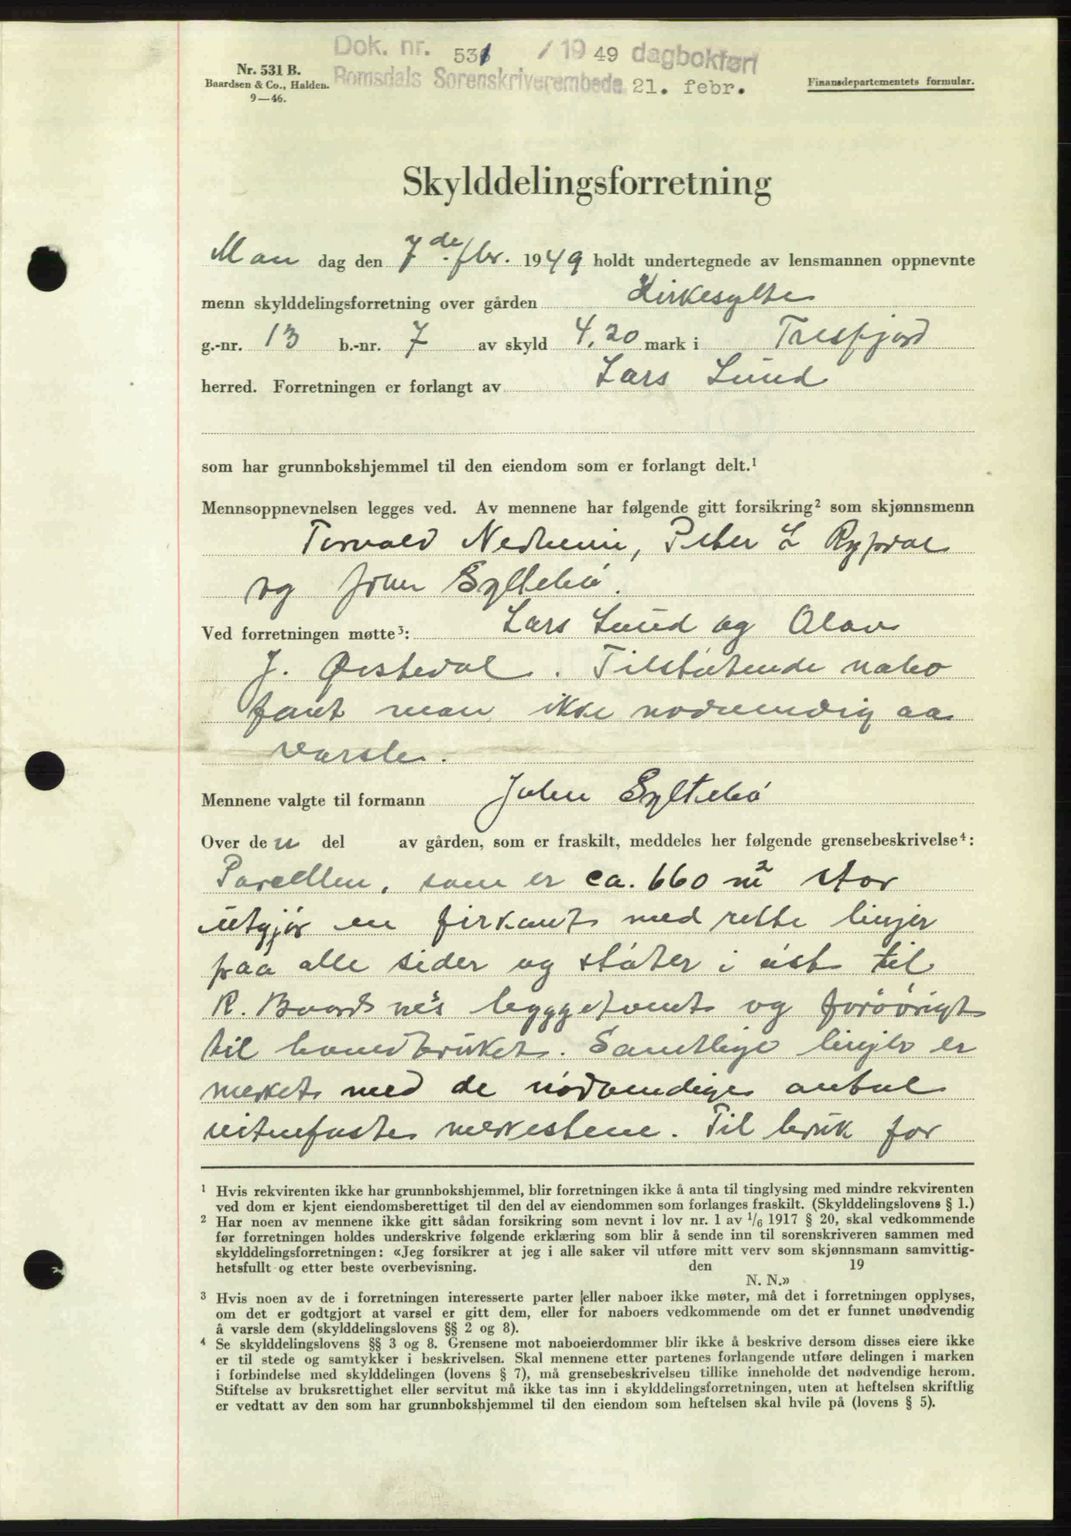 Dok. nr. 531 / 1949 dagbokført
Nr. 531 B.
Baardsen & Co., Halden.
9—46.
Romsdals Sorenskriverembede 21. febr.
Finansdepartementets formular.
Skylddelingsforretning
Man dag den 7de fbr. 1949 holdt undertegnede av lensmannen oppnevnte
menn skylddelingsforretning over gården Kirkesylte
g.-nr. 13 b.-nr. 7 av skyld 4,20 mark i Tresfjord
herred. Forretningen er forlangt av Lars Lund
som har grunnbokshjemmel til den eiendom som er forlangt delt.¹
Mennsoppnevnelsen legges ved. Av mennene har følgende gitt forsikring² som skjønnsmenn
Torvald Nedreim, Peter L Rypdal
og John Syltebö.
Ved forretningen møtte³: Lars Lund og Olav
J. Øvstedal. Tilstøtende nabo
fant man ikke nødvendig aa
varsle.
Mennene valgte til formann John Syltebö
Over den del av gården, som er fraskilt, meddeles her følgende grensebeskrivelse⁴:
Parcellen, som er ca. 660 m² stor
utgjör en firkant med rette linjer
paa alle sider og støter i öst til
R. Baardsnes byggetomt og forövrigt
til hovedbruket. Samtlige linjer er
merket med de nödvendige antal
vitnefaste merkestene. Til bruk for
¹ Hvis rekvirenten ikke har grunnbokshjemmel, blir forretningen ikke å anta til tinglysing med mindre rekvirenten
ved dom er kjent eiendomsberettiget til den del av eiendommen som forlanges fraskilt. (Skylddelingslovens § 1.)
² Har noen av mennene ikke gitt sådan forsikring som nevnt i lov nr. 1 av 1/6 1917 § 20, skal vedkommende
før forretningen holdes underskrive følgende erklæring som blir å sende inn til sorenskriveren sammen med
skylddelingsforretningen: «Jeg forsikrer at jeg i alle saker vil utføre mitt verv som skjønnsmann samvittig-
hetsfullt og etter beste overbevisning. den 19
N. N.»
³ Hvis noen av de i forretningen interesserte parter eller naboer ikke møter, må det i forretningen opplyses,
om det er godtgjort at varsel er gitt dem, eller for naboers vedkommende om det er funnet unødvendig
å varsle dem (skylddelingslovens §§ 2 og 8).
⁴ Se skylddelingslovens §§ 3 og 8. Grensene mot naboeierdommer blir ikke å beskrive dersom disses eiere ikke
er til stede og samtykker i beskrivelsen. Skal mennene etter partenes forlangende utføre delingen i marken
i forbindelse med skylddelingen (lovens § 7), må grensebeskrivelsen tillike inneholde det nødvendige herom.
Stiftelse av bruksrettighet eller servitut må ikke tas inn i skylddelingsforretningen, uten at heftelsen skriftlig
er vedtatt av den som har grunnbokshjemmel til den eiendom som heftelsen skal hvile på (lovens § 5).